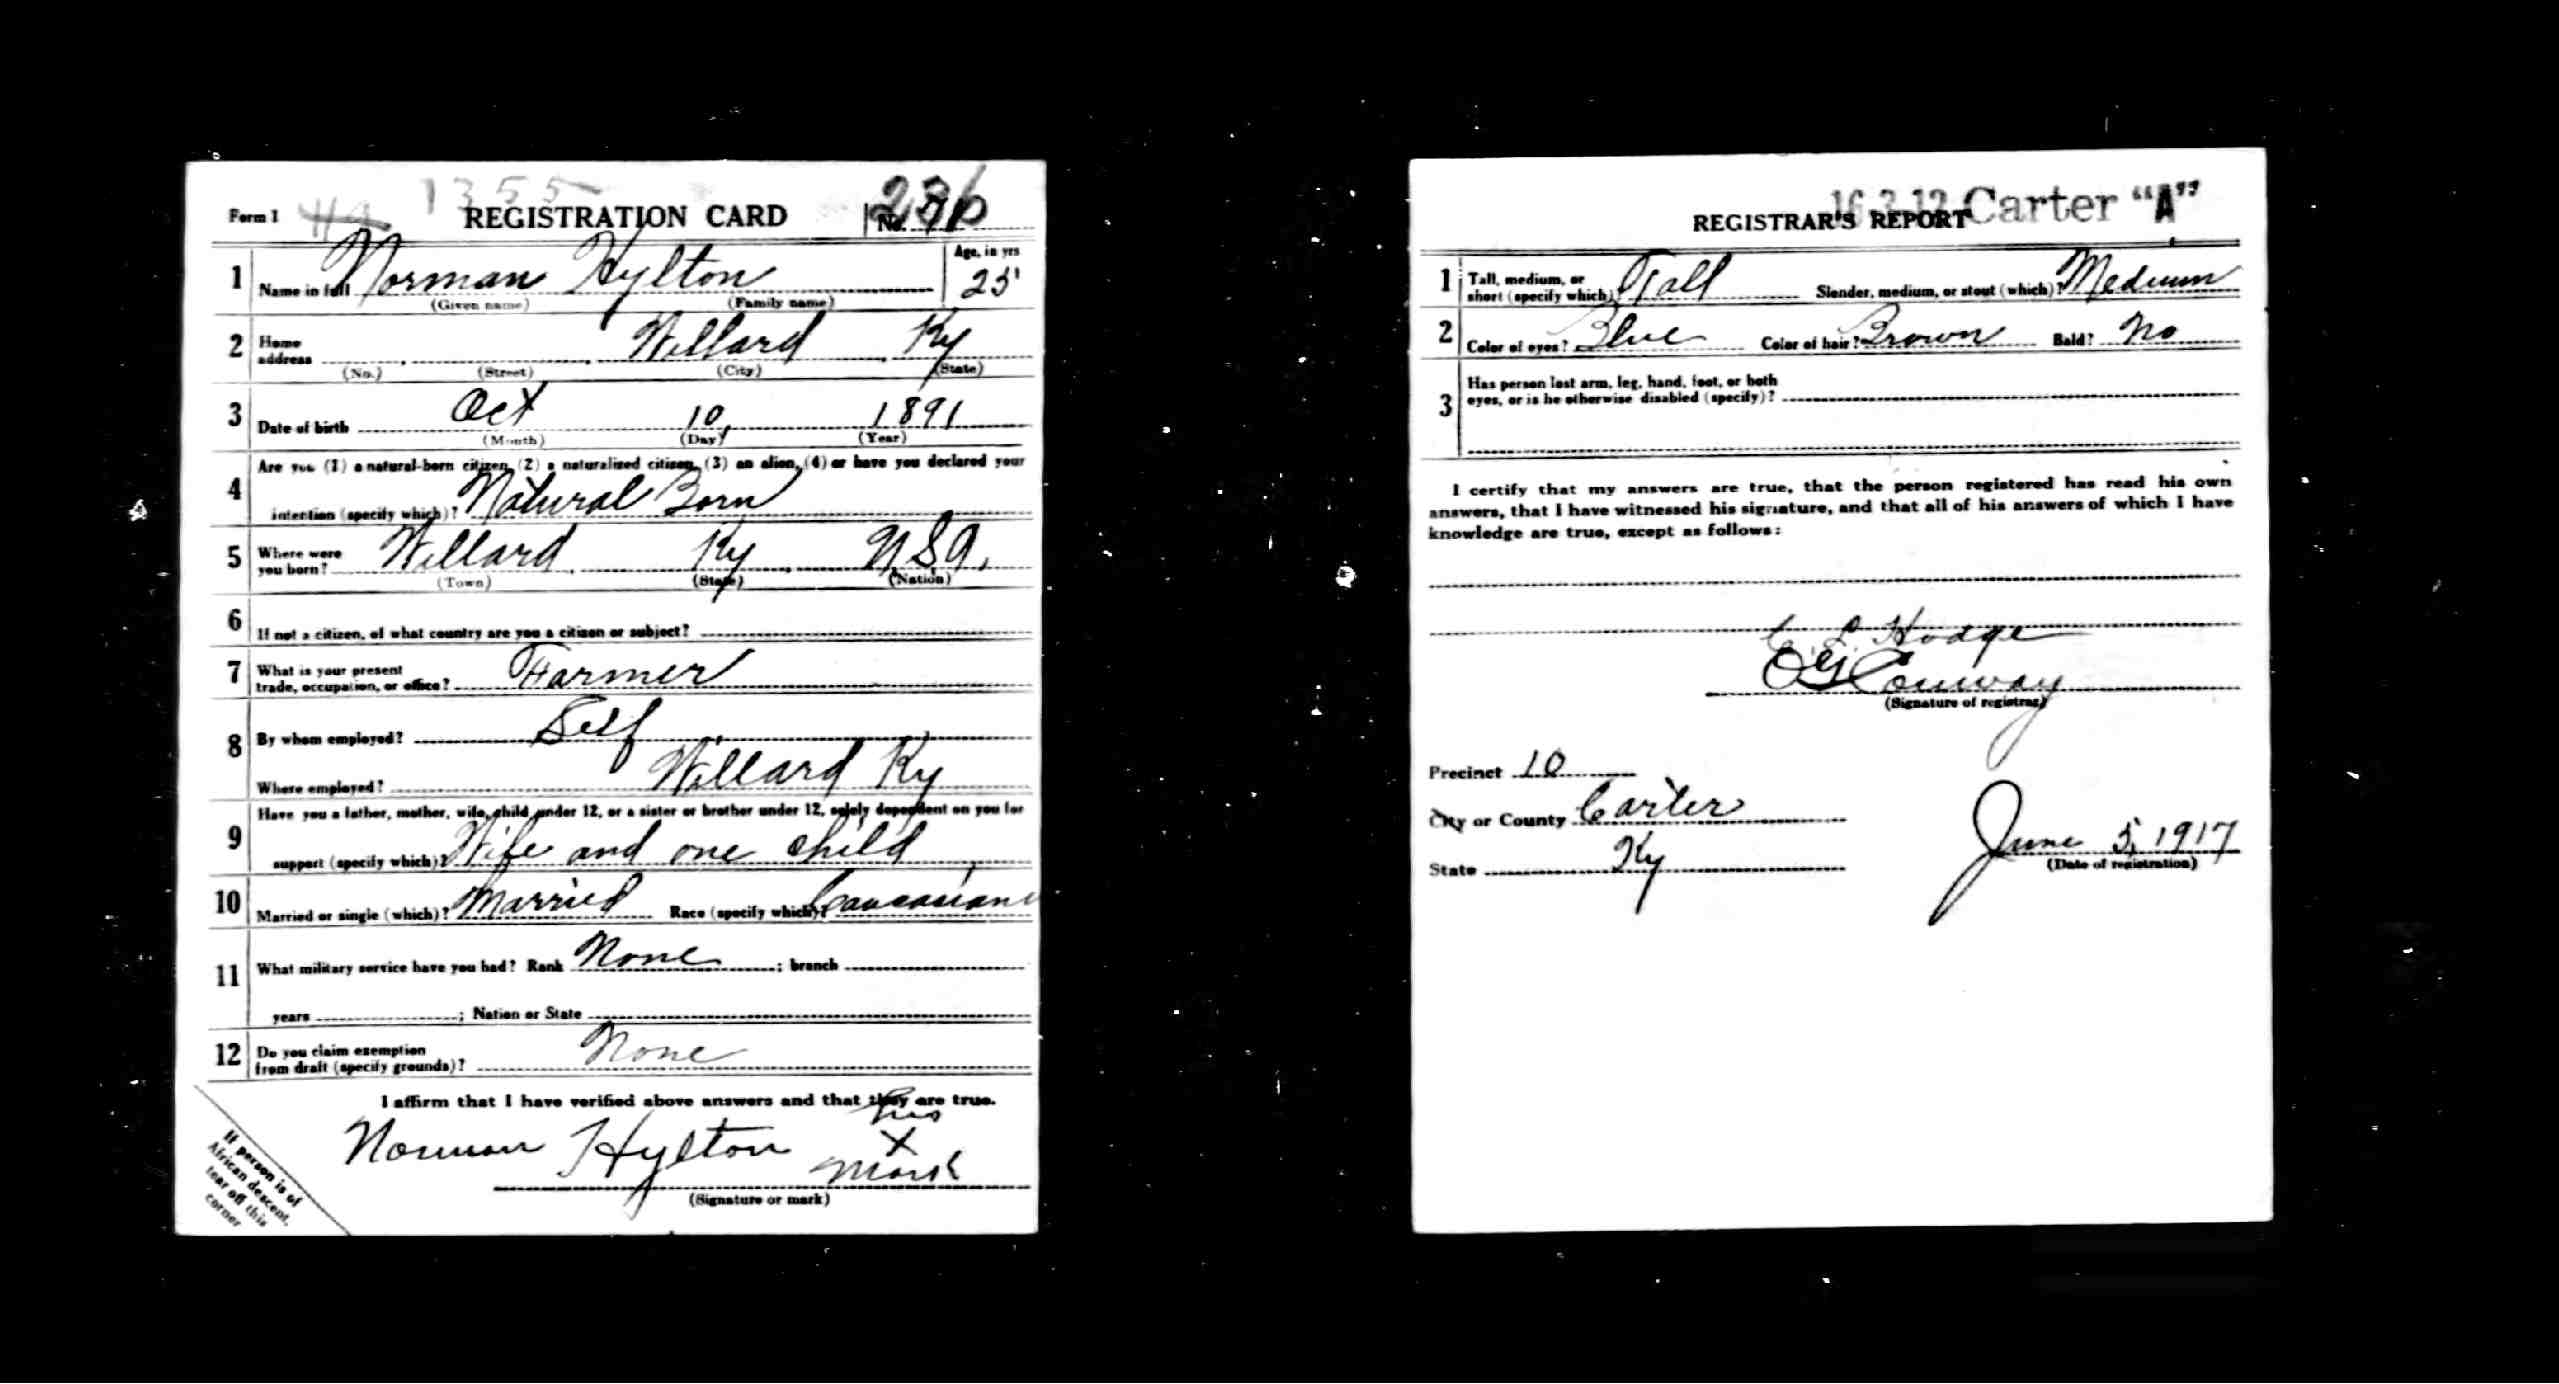 1355
Form 1 REGISTRATION CARD No. 236
1 Name in full Norman Hylton Age, in yrs 25
(Given name) (Family name)
2 Home address Willard Ky
(No.) (Street) (City) (State)
3 Date of birth Oct 10, 1891
(Month) (Day) (Year)
4 Are you (1) a natural-born citizen, (2) a naturalized citizen, (3) an alien, (4) or have you declared your
intention (specify which)? Natural Born
5 Where were you born? Willard Ky USA.
(Town) (State) (Nation)
6 If not a citizen, of what country are you a citizen or subject?
7 What is your present
trade, occupation, or office? Farmer
8 By whom employed? Self
Where employed? Willard Ky
9 Have you a father, mother, wife, child under 12, or a sister or brother under 12, solely dependent on you for
support (specify which)? Wife and one child
10 Married or single (which)? Married Race (specify which)? Caucasian
11 What military service have you had? Rank None ; branch
years ; Nation or State
12 Do you claim exemption
from draft (specify grounds)? None
I affirm that I have verified above answers and that they are true.
his
Norman Hylton X
mark
(Signature or mark)
If person is of
African descent,
tear off this
corner
16-3-12 Carter "A"
REGISTRAR'S REPORT
1 Tall, medium, or
short (specify which)? Tall Slender, medium, or stout (which)? Medium
2 Color of eyes? Blue Color of hair? Brown Bald? No
3 Has person lost arm, leg, hand, foot, or both
eyes, or is he otherwise disabled (specify)?
I certify that my answers are true, that the person registered has read his own
answers, that I have witnessed his signature, and that all of his answers of which I have
knowledge are true, except as follows:
C. L. Hodge
Conway
(Signature of registrar)
Precinct 10
City or County Carter
State Ky June 5, 1917
(Date of registration)